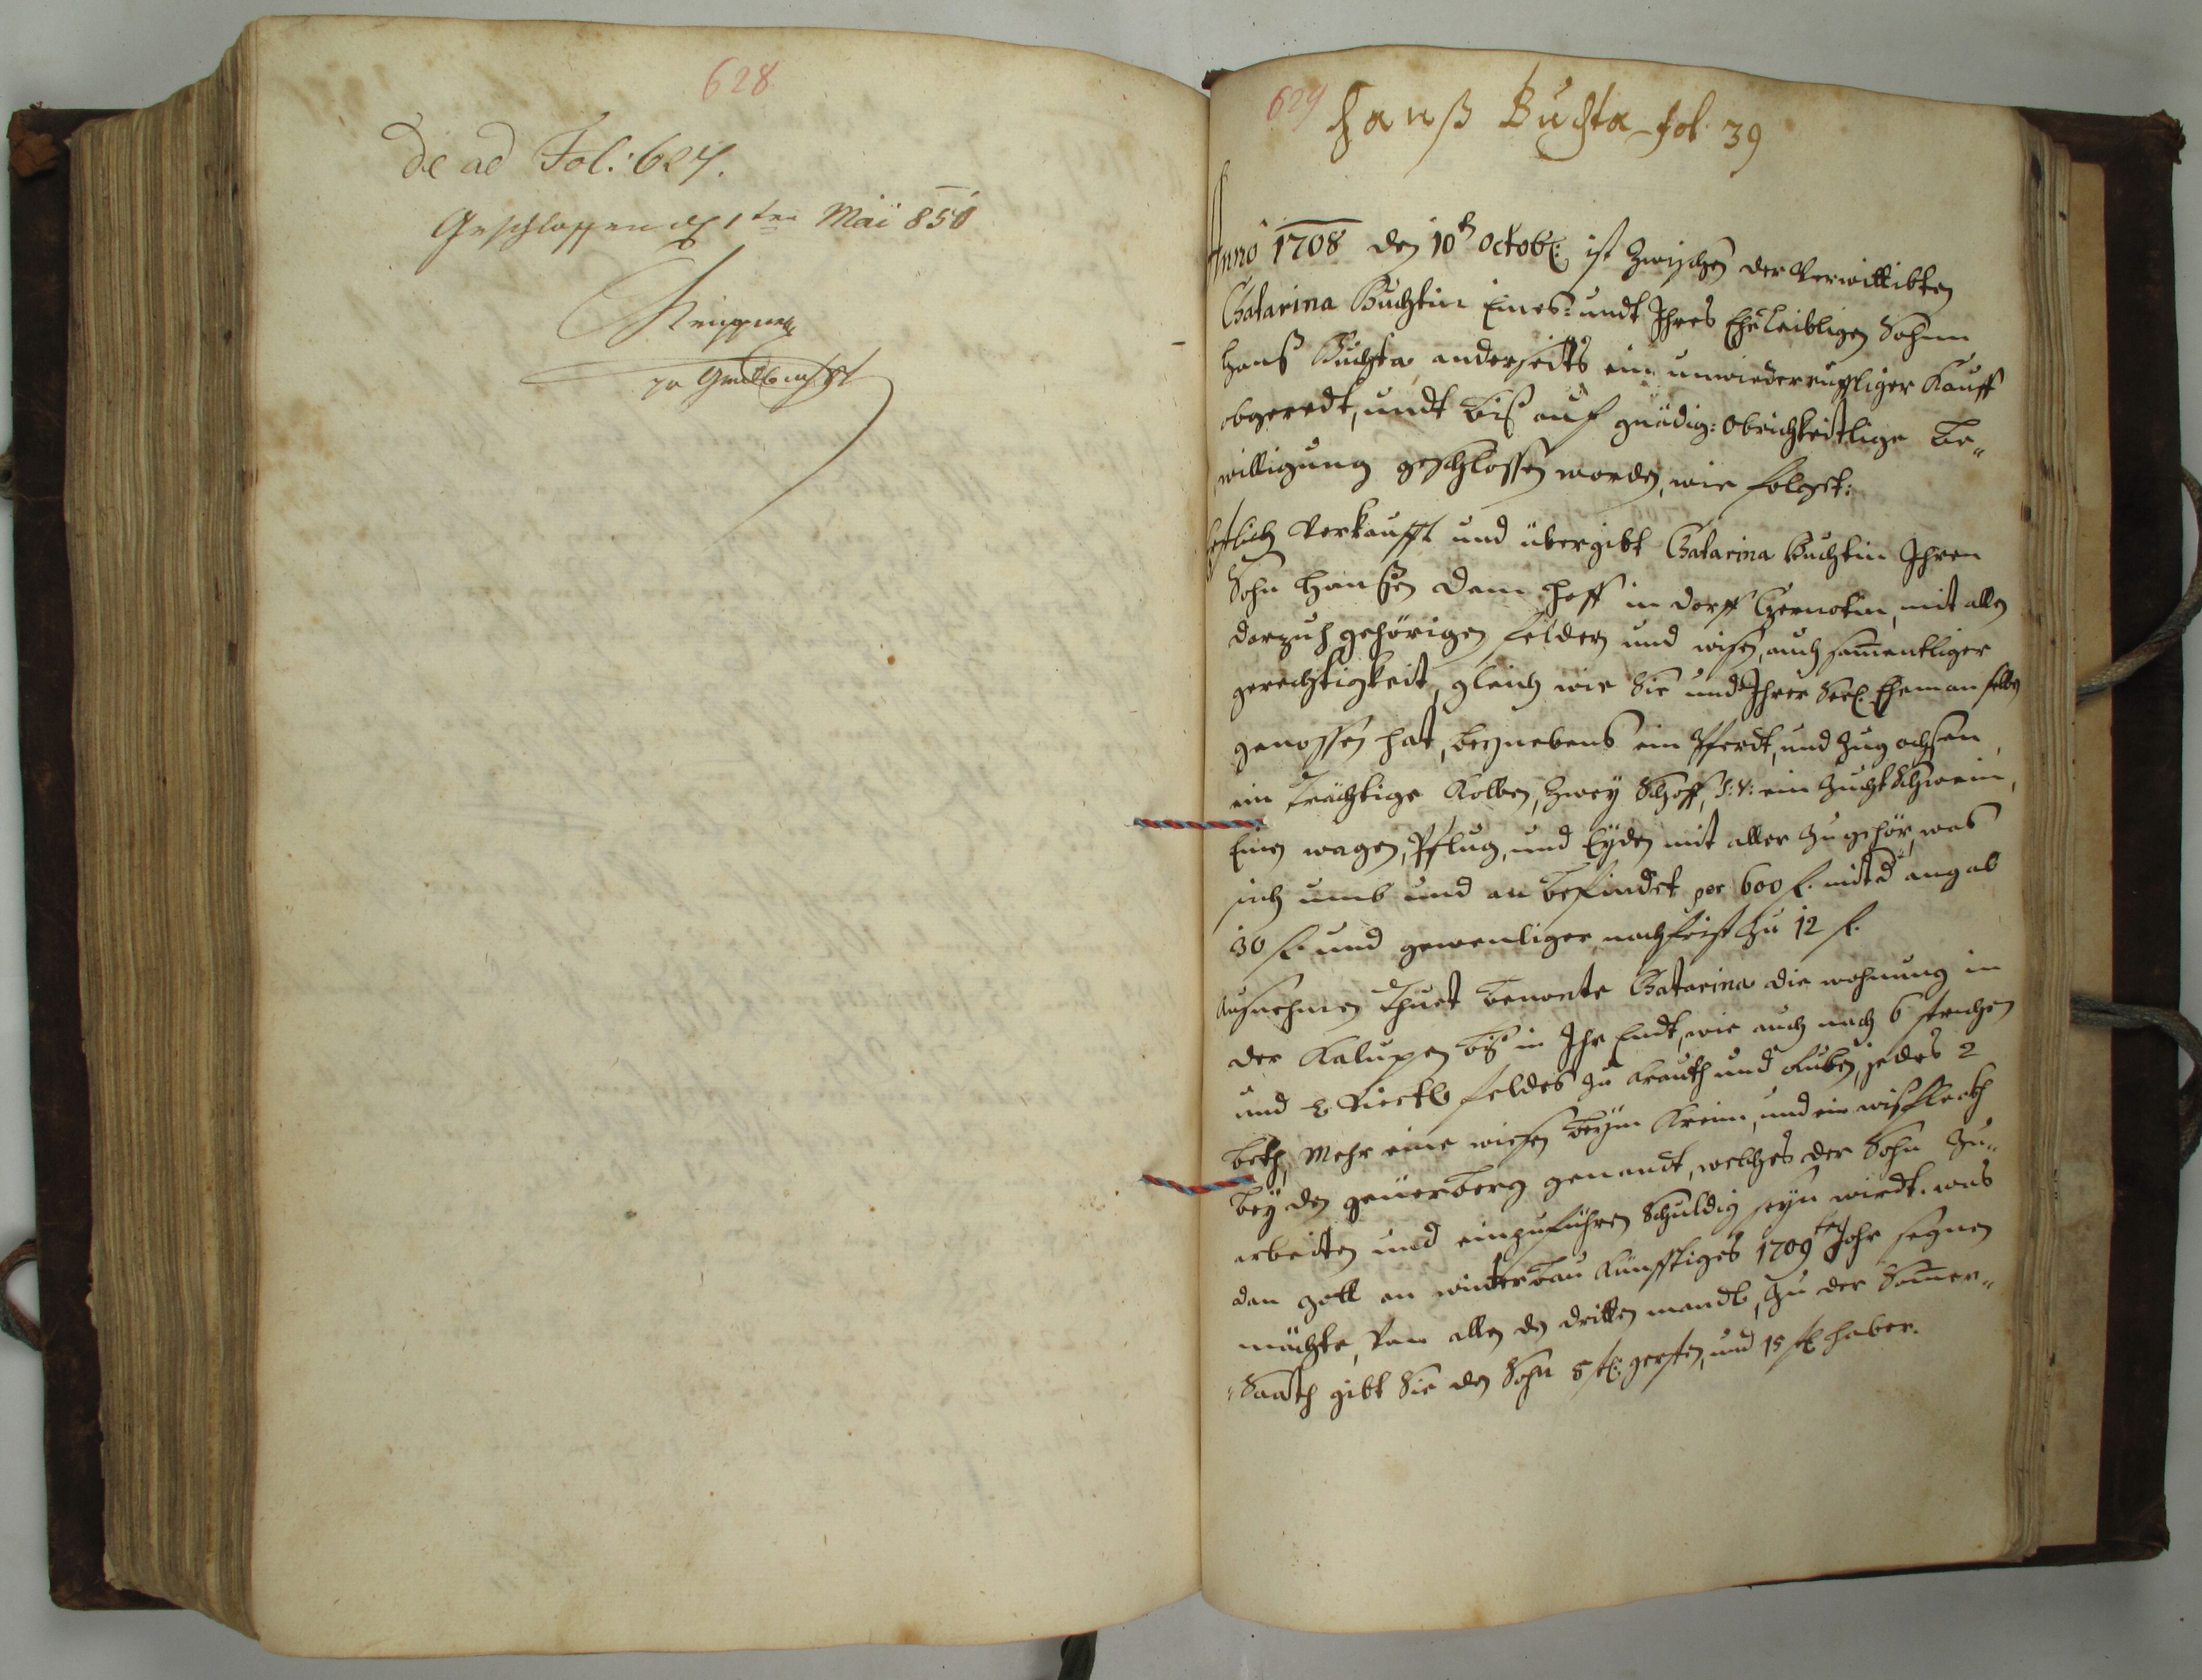 628
de ad Fol: 627.
Geschlossen d 1ten Mai 850
629
Hanß Buchta fol. 39
Anno 1708 den 10t Octob: ist Zwischen der Verwittibten
Catarina Buchtin Eines: undt Ihres Ehe Leibligen Sohnn
Hanß Buchta anderseits ein unwiederruffliger Kauff
abgeredt, undt biß auf gnädig: Obrichkeitlige Be„
willigung geschlossen worden, wie folgt:
Erstlich Verkaufft und übergibt Catarina Buchtin Ihren
Sohn Hanßen dem Hoff in dorff Czernotin, mit allen
darzuh gehörigen felder und wisen, auch samentliger
gerechtigkeit, gleich wie Sie und Ihrer Seel: Eheman selbe
genossen hat, beynebens ein Pferdt, und Zug ochsen,
ein trächtige Kolben, Zwey Schoff, S: V: ein Zucht Schwein,
Einen wagen, Pflug, und Eyden mit aller Zugehör, was
sich umb und an befindet per 600 f. mit d angab
30 f. und gewenliger nachfrist Zu 12 f.
Außnehmen thuet benante Catarina die wohnung in
der Kalupen biß in Ihr Endt, wie auch nach 6 strichen
und 2 Viertl feldes zu Krauth und Ruben, jedes 2
beth, Mehr eine wiesen beym Kreim, und ein wißfleckh
bey den geüerberg genandt, welches der Sohn Zu„
arbeiten und einzuführen Schuldig seyn wirdt. was
dan gott an winterbau Künfftiges 1709ten Jahr segnen
möchte, Von allen den dritten mandl, Zu der Somer„
„Saath gibt Sie den Sohn 5 st: gersten, und 15 st: haber.